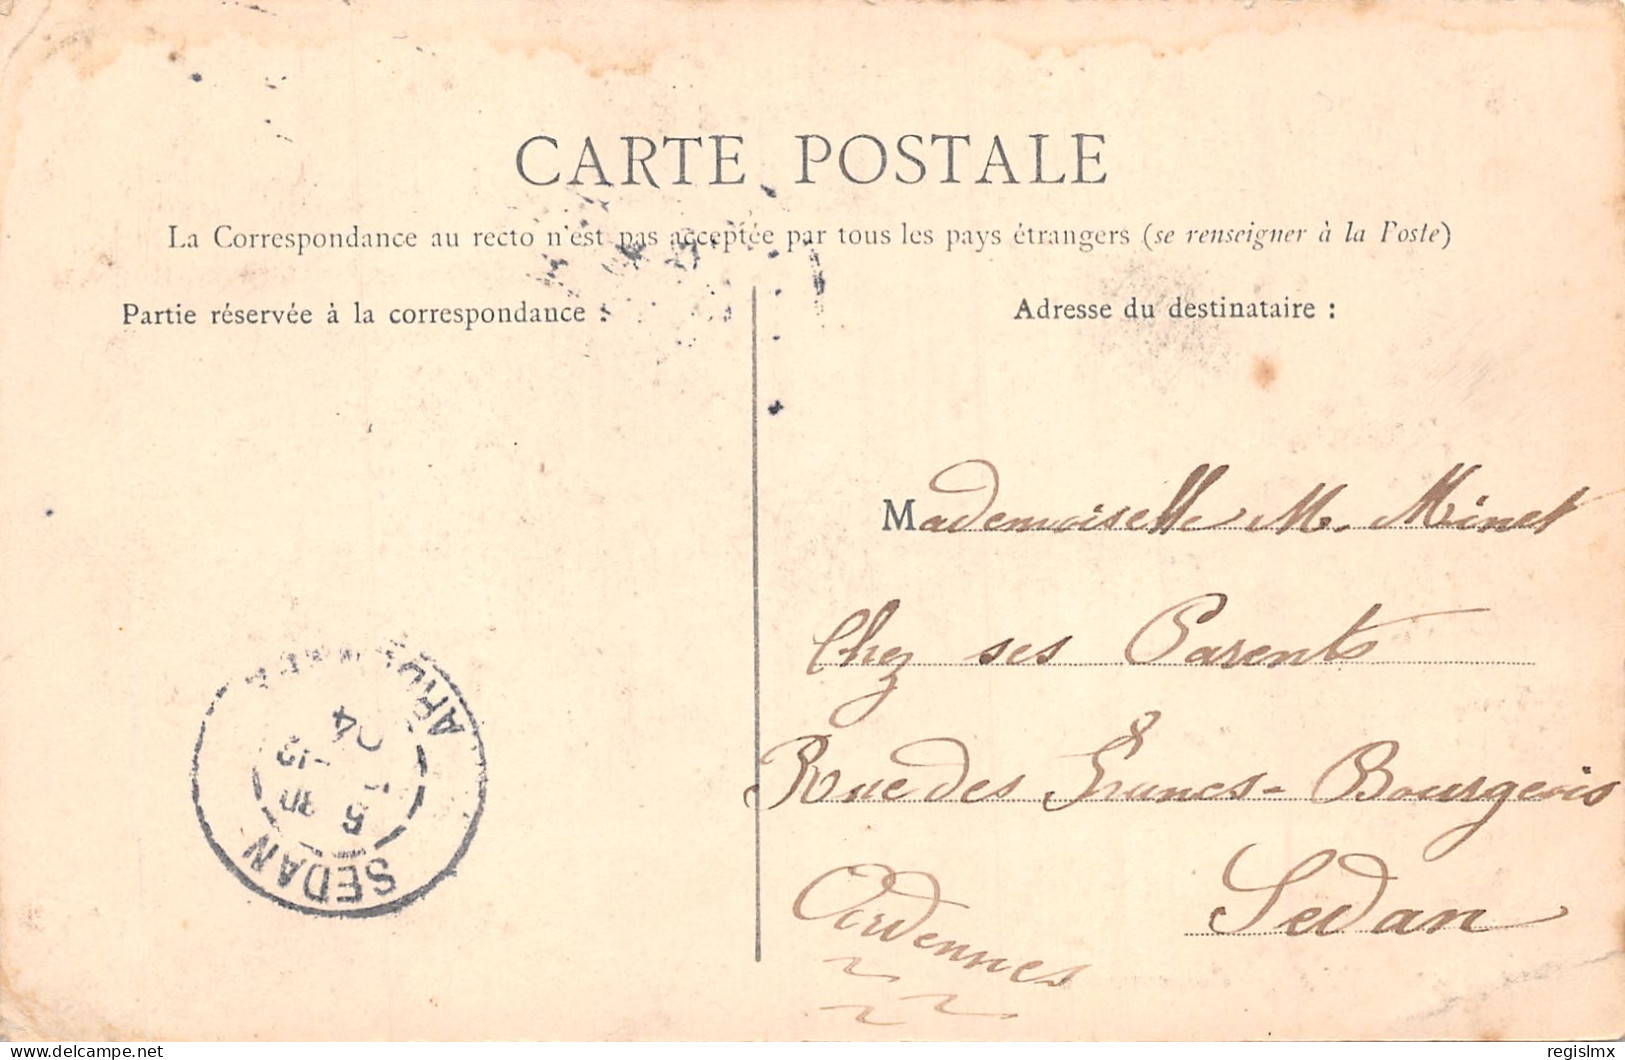 CARTE POSTALE
La Correspondance au recto n'est pas acceptée par tous les pays étrangers (se renseigner à la Poste)
Partie réservée à la correspondance :
Adresse du destinataire :
Mademoiselle M. Minet
Chez ses Parents
Rue des Francs-Bourgeois
Sedan
Ardennes
SEDAN
delcampe.net
regislmx